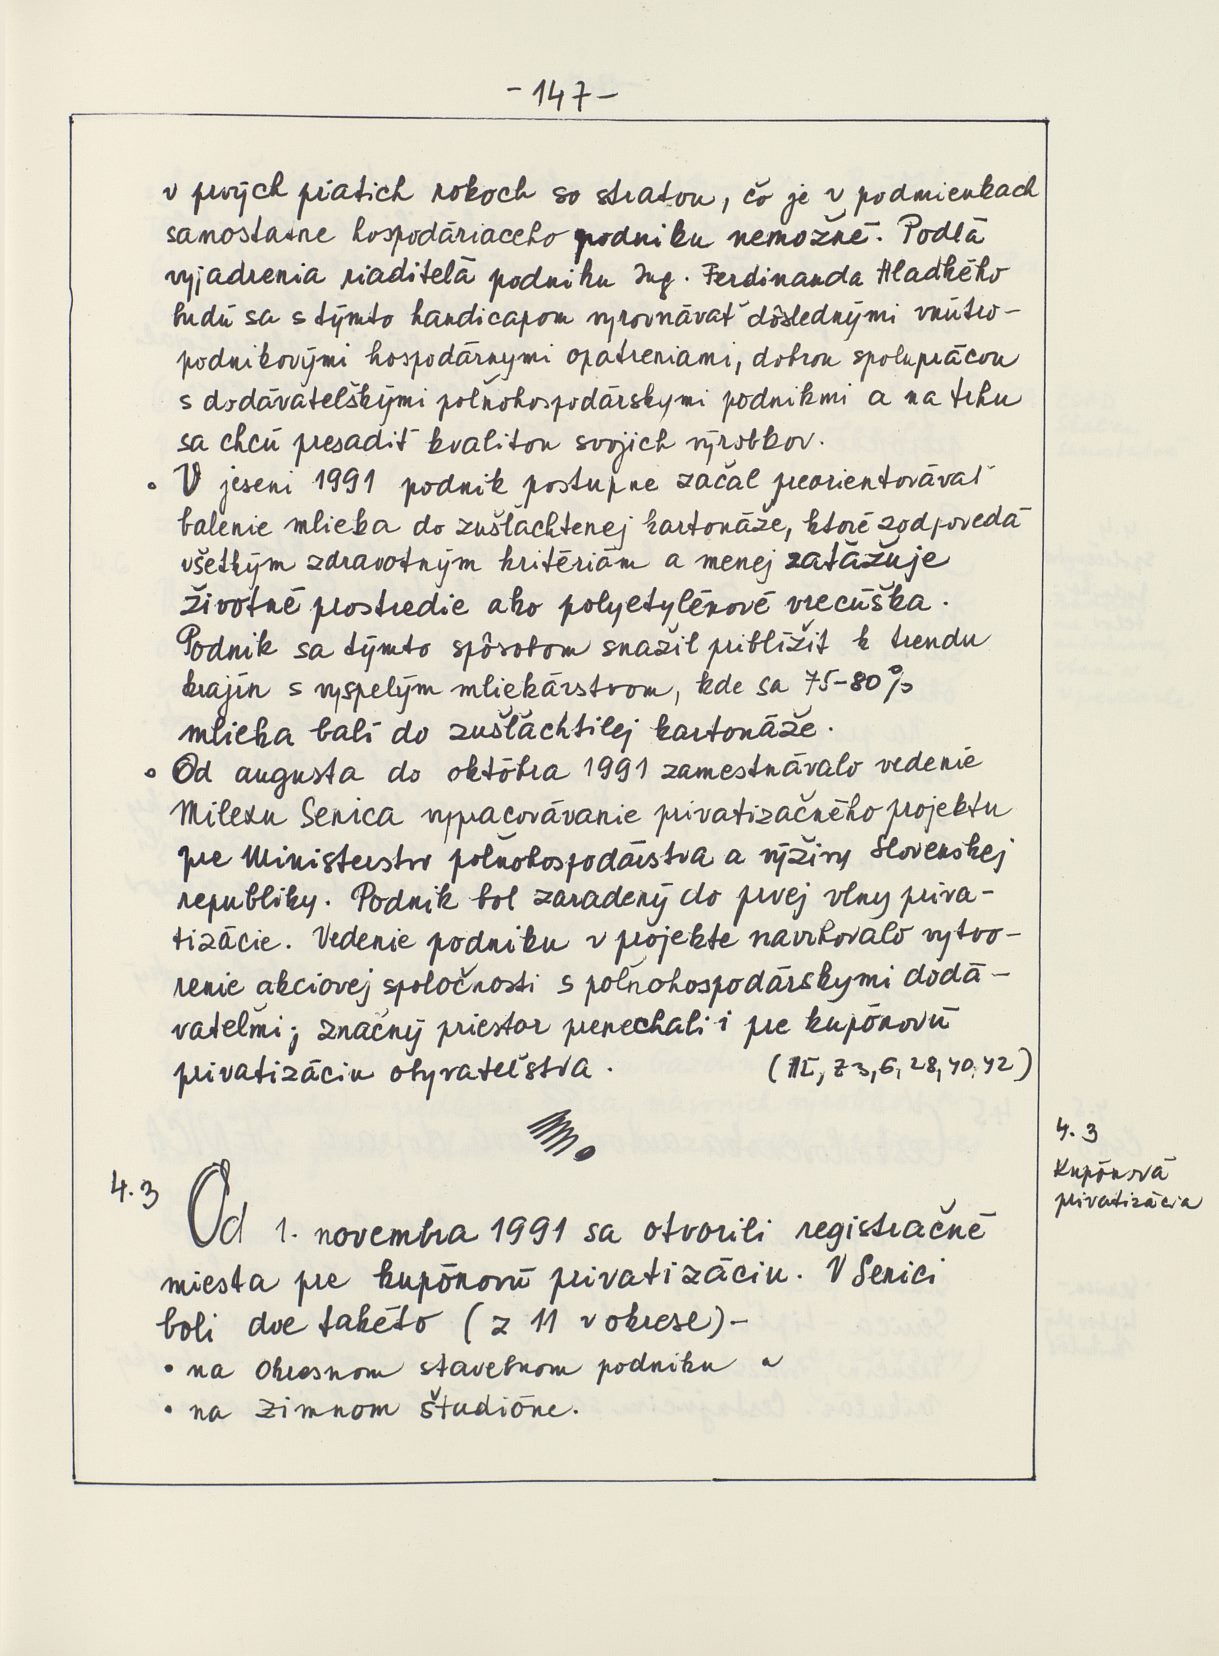 - 147 -
v prvých piatich rokoch so stratou, čo je v podmienkach
samostatne hospodáriaceho podniku nemožné. Podľa
vyjadrenia riaditeľa podniku Ing. Ferdinanda Hladkého
budú sa s týmto handicapom vyrovnávať dôslednými vnútro-
podnikovými hospodárnymi opatreniami, dobrou spoluprácou
s dodávateľskými poľnohospodárskymi podnikmi a na trhu
sa chcú presadiť kvalitou svojich výrobkov.
• V jeseni 1991 podnik postupne začal preorientovávať
balenie mlieka do zušľachtenej kartonáže, ktoré zodpovedá
všetkým zdravotným kritériám a menej zaťažuje
životné prostredie ako polyetylénové vrecúška.
Podnik sa týmto spôsobom snažil priblížiť k trendu
krajín s vyspelým mliekárstvom, kde sa 75-80%
mlieka balí do zušľachtilej kartonáže.
• Od augusta do októbra 1991 zamestnávalo vedenie
Milexu Senica vypracovávanie privatizačného projektu
pre Ministerstvo poľnohospodárstva a výživy Slovenskej
republiky. Podnik bol zaradený do prvej vlny priva-
tizácie. Vedenie podniku v projekte navrhovalo vytvo-
renie akciovej spoločnosti s poľnohospodárskymi dodá-
vateľmi; značný priestor prenechali i pre kupónovú
privatizáciu obyvateľstva. (III, Z 3, 6, 28, 40, 42)
4.3
Kupónová
privatizácia
4.3 Od 1. novembra 1991 sa otvorili registračné
miesta pre kupónovú privatizáciu. V Senici
boli dve takéto (z 11 v okrese) -
• na Okresnom stavebnom podniku a
• na Zimnom študióne.